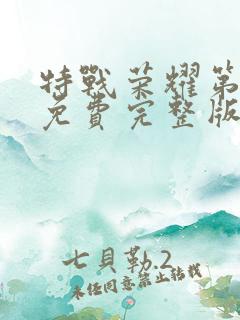 特戰荣耀第
免費完整版
七貝勒.2
未经同意禁止转载